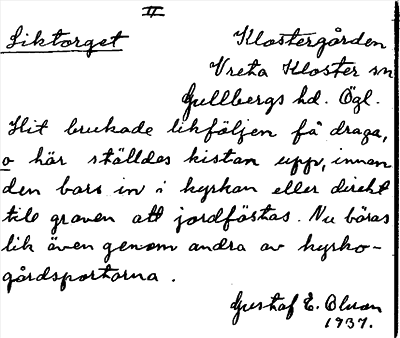 II
Liktorget Klostergården
Vreta Kloster sn
Gullbergs hd. Ögl.
Hit brukade likföljen få draga,
o här ställdes kistan upp, innan
den bars in i kyrkan eller direkt
till graven att jordfästas. Nu bäras
lik även genom andra av kyrko-
gårdsportarna.
Gustaf E. Olsson
1937.